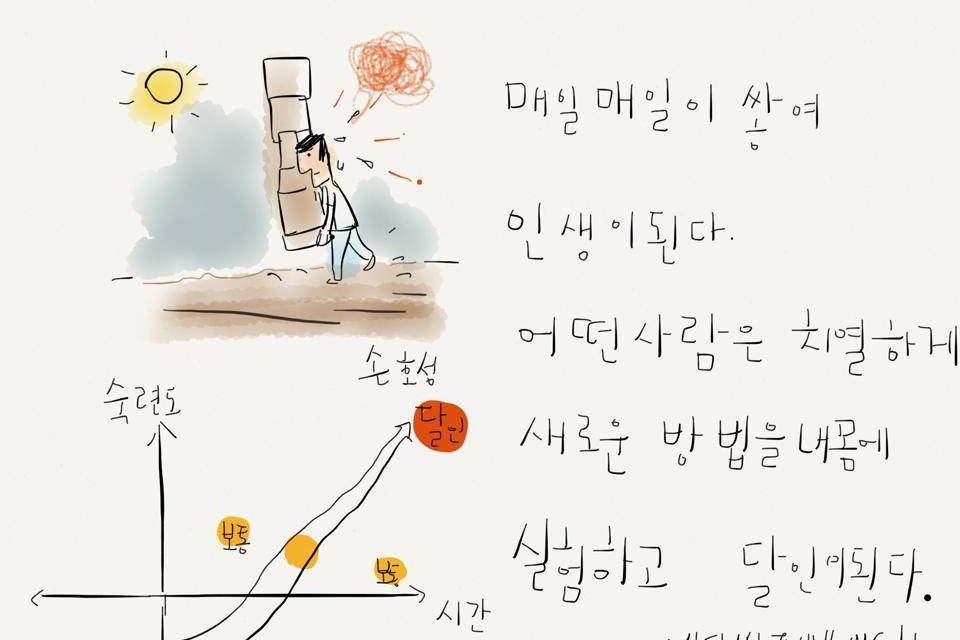 매일매일이 쌓여
인생이된다.
어떤사람은 치열하게
새로운 방법을내몸에
실험하고 달인이된다.
손호성
숙련도
달인
보통
보통
시간